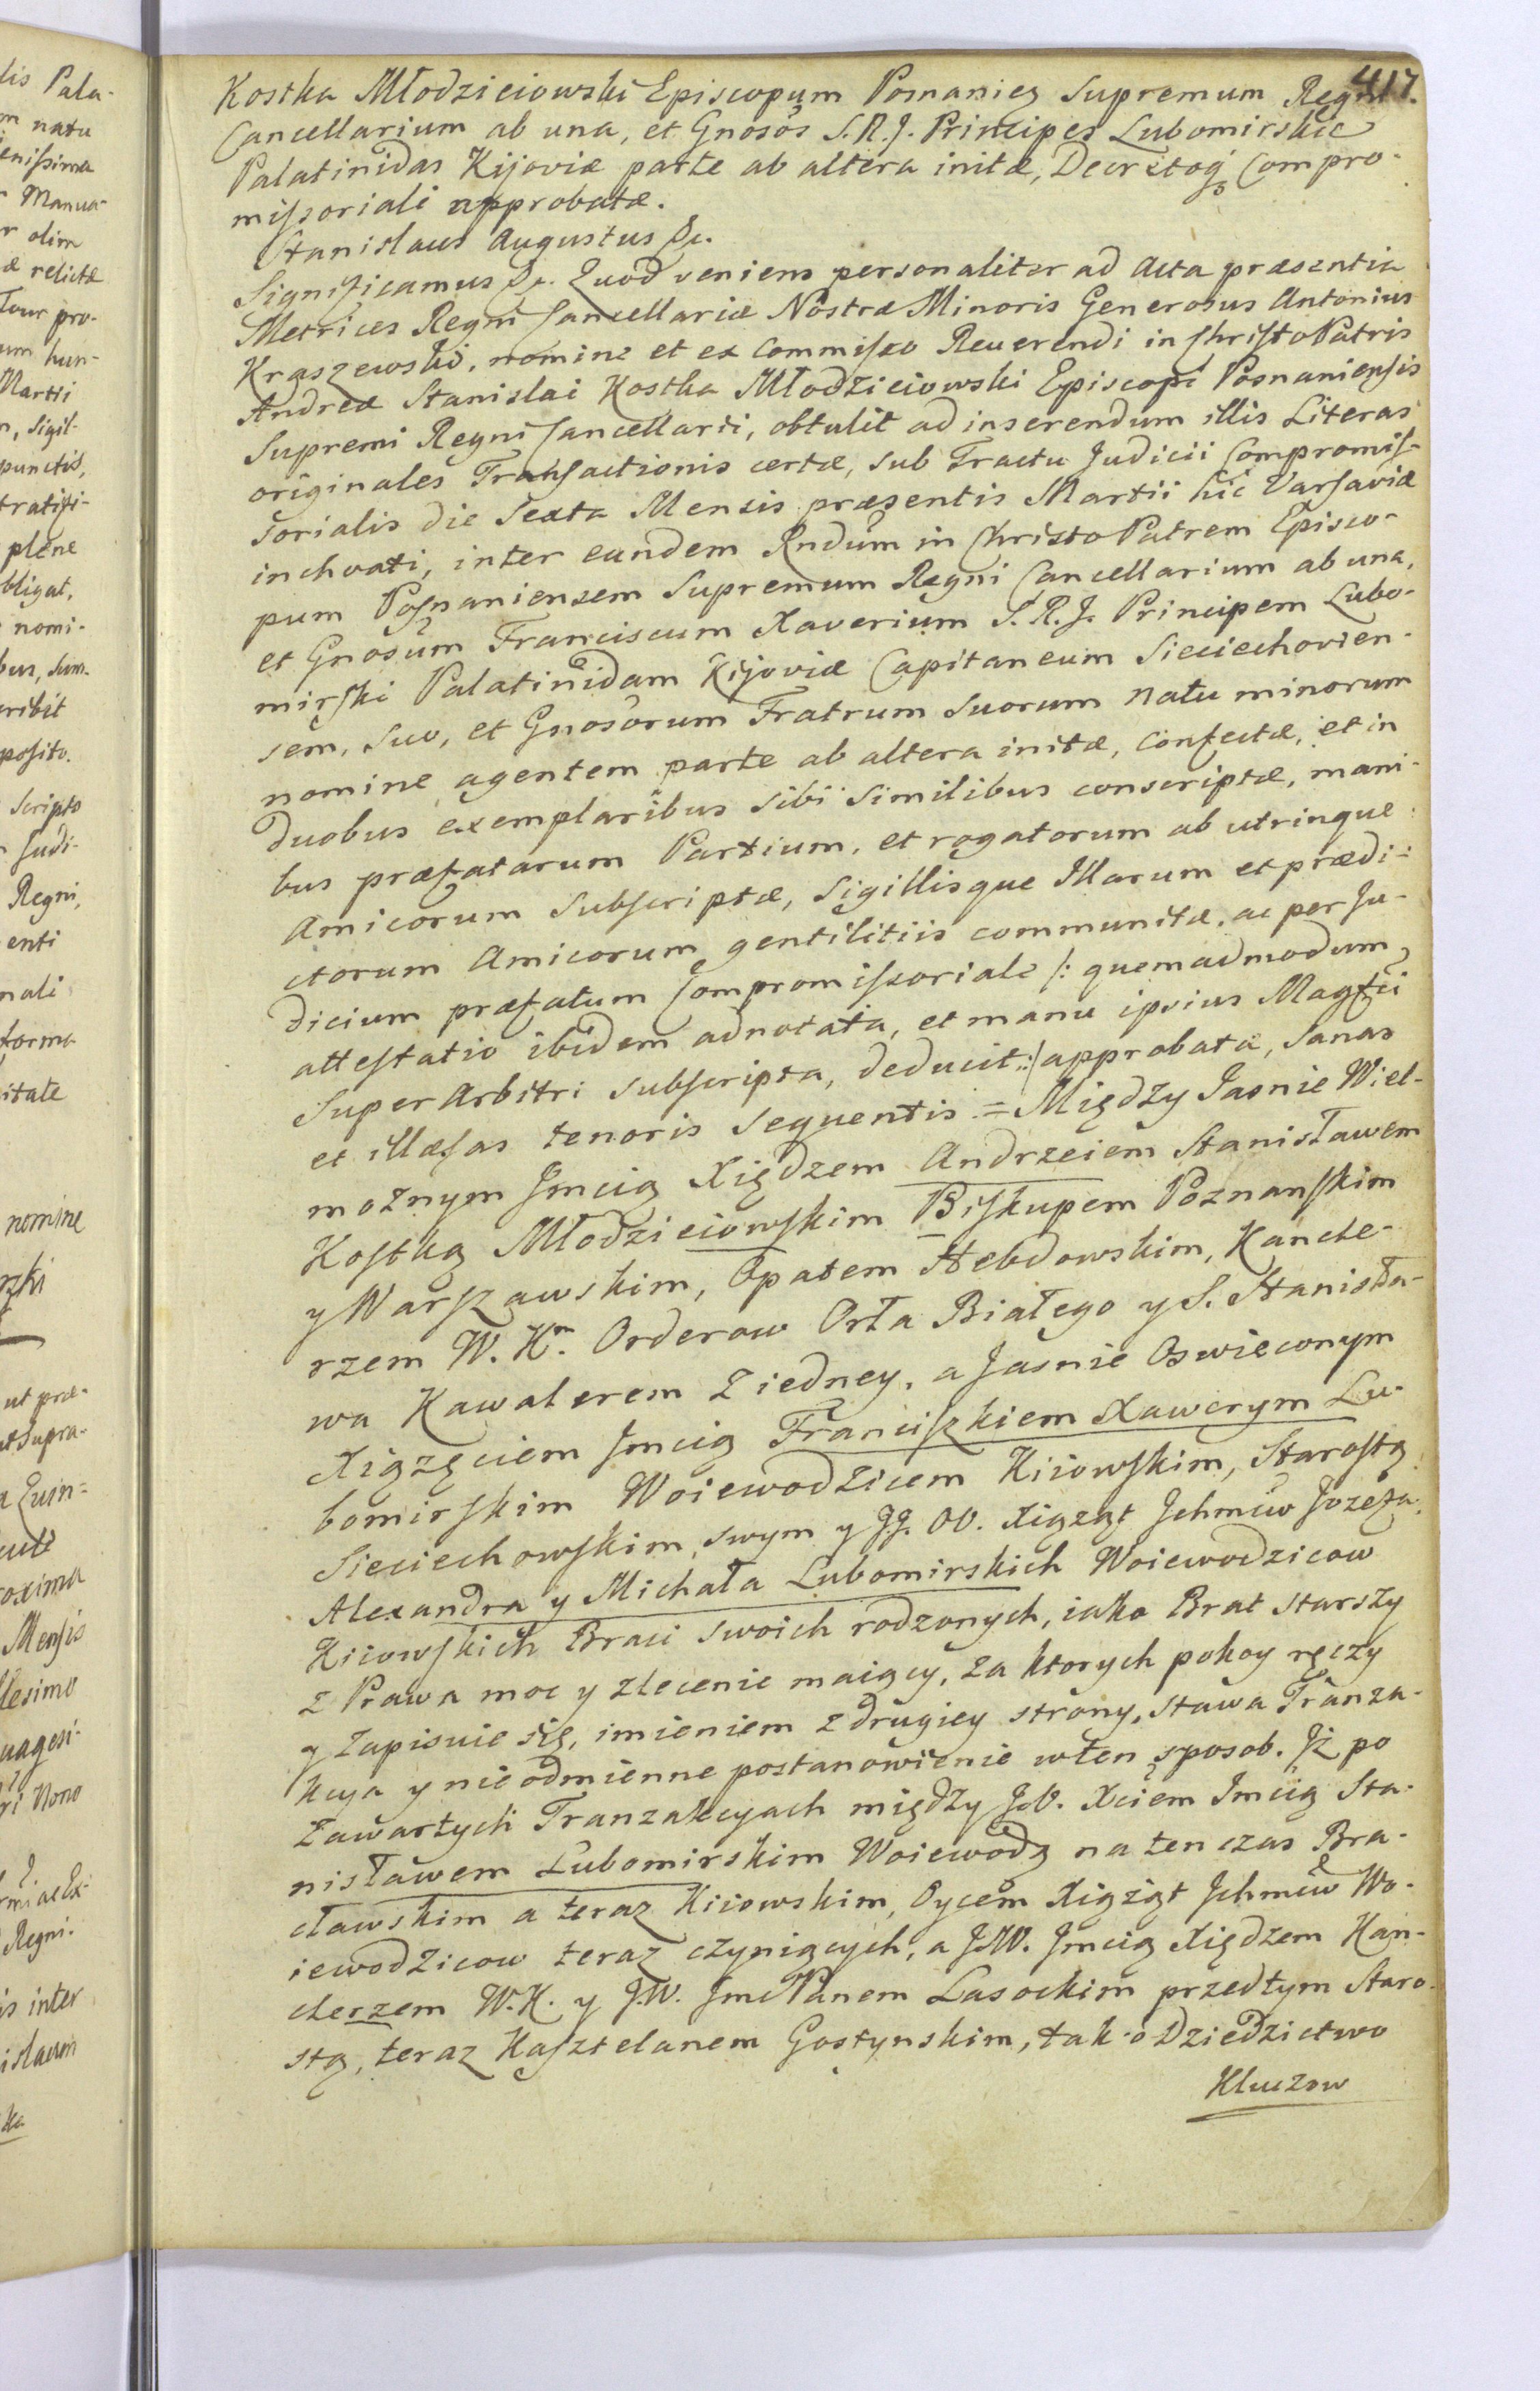 417.
Kostka Młodzieiowski Episcopum Posnanieṅ Supremum Regni
Cancellarium ab una, et Gnosos S. R. J. Principes Lubomirskie
Palatinidas Kijoviæ parte ab altera initæ, Decretoq; Compro-
missoriali approbatæ.
Stanislaus Augustus &c.
Significamus &c. Quod veniens personaliter ad Acta præsentia
Metrices Regni Cancellariæ Nostræ Minoris Generosus Antonius
Kraszewski, nomine et ex Commisso Reuerendi in Christo Patris
Andreæ Stanislai Kostka Młodzieiowski Episcopi Posnaniensis
Supremi Regni Cancellarii, obtulit ad inserendum illis Literas
originales Transactionis certæ, sub Tractu Judicii Compromis-
sorialis die Sexta Mensis præsentis Martii hic Varsaviæ
inchoati, inter eundem Rndum in Christo Patrem Episco-
pum Posnaniensem Supremum Regni Cancellarium ab una,
et Gnosum Franciscum Xaverium S. R. J. Principem Lubo-
mirski Palatinidam Kijoviæ Capitaneum Sieciechovien-
sem, suo, et Gnosorum Fratrum Suorum natu minorum
nomine agentem parte ab altera initæ, confectæ, et in
duobus exemplaribus sibi similibus conscriptæ, mani-
bus præfatarum Partium, et rogatorum ab utrinque
Amicorum Subscriptæ, Sigillisque Illarum et prædi-
ctorum Amicorum gentilitiis communitæ, ac per Ju-
dicium præfatum Compromissoriale /: quemadmodum
attestatio ibidem adnotata, et manu ipsius Magfici
Super Arbitri subscripta, deducit :/ approbata, Sanas
et illæsas tenoris sequentis = Między Jasnie Wiel-
możnym Jmcią Xiędzem Andrzeiem Stanisławem
Kostką Młodzieiowskim Biskupem Poznanskim
y Warszawskim, Opatem Hebdowskim, Kancle-
rzem W. Kn. Orderow Orła Białego y S. Stanisła-
wa Kawalerem z iedney, a Jasnie Oswieconym
Xiązęciem Jmcią Franciszkiem Xawerym Lu-
bomirskim Woiewodzicem Kiiowskim, Starostą
Sieciechowskim, swym y JJ. OO. Xiąząt Jchmciw Jozefa,
Alexandra y Michała Lubomirskich Woiewodzicow
Kiiowskich Braci swoich rodzonych, iako Brat starszy
z Prawa moc y zlecenie maiący, za ktorych pokoy ręczy
y zapisuie się, imieniem z drugiey strony, stawa Tranza-
kcya y nieodmienne postanowienie w ten sposob. Jż po
zawartych Tranzakcyach między J.O. Xciem Jmcią Sta-
nisławem Lubomirskim Woiewodą na ten czas Bra-
cławskim a teraz Kiiowskim, Oycem Xiążąt Jchmciw Wo-
iewodzicow teraz czyniących, a J.W. Jmcią Xiędzem Kan-
clerzem W.K. y J.W. Jmc Panem Lasockim przedtym Staro-
stą, teraz Kasztelanem Gostynskim, tak o Dziedzictwo
Kluczow